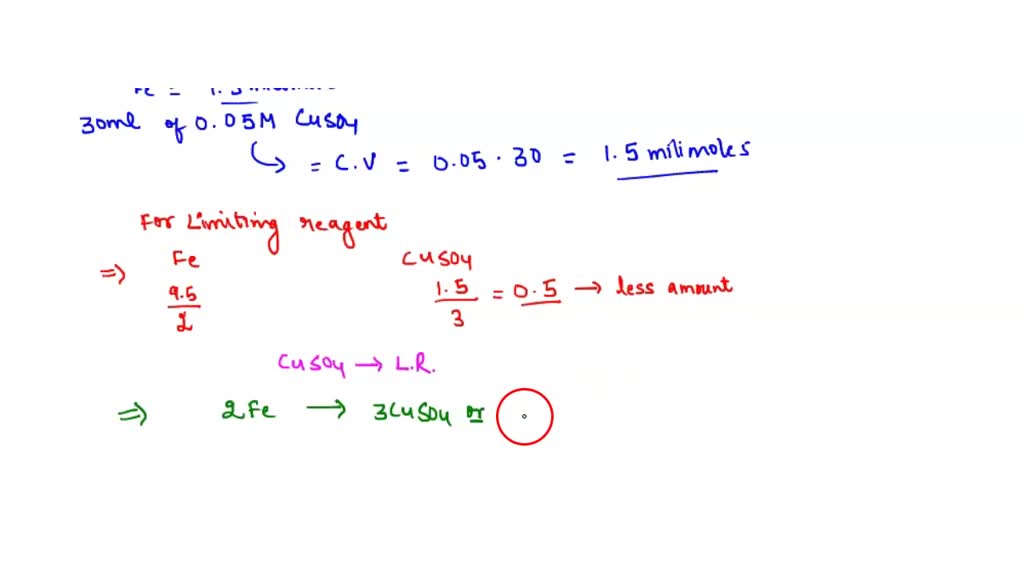 30ml of 0.05M CuSO4
= C.V = 0.05 . 30 = 1.5 milimoles
For Limiting reagent
⇒ Fe CuSO4
9.5/2 1.5/3 = 0.5 → less amount
CuSO4 → L.R.
⇒ 2Fe → 3CuSO4 or